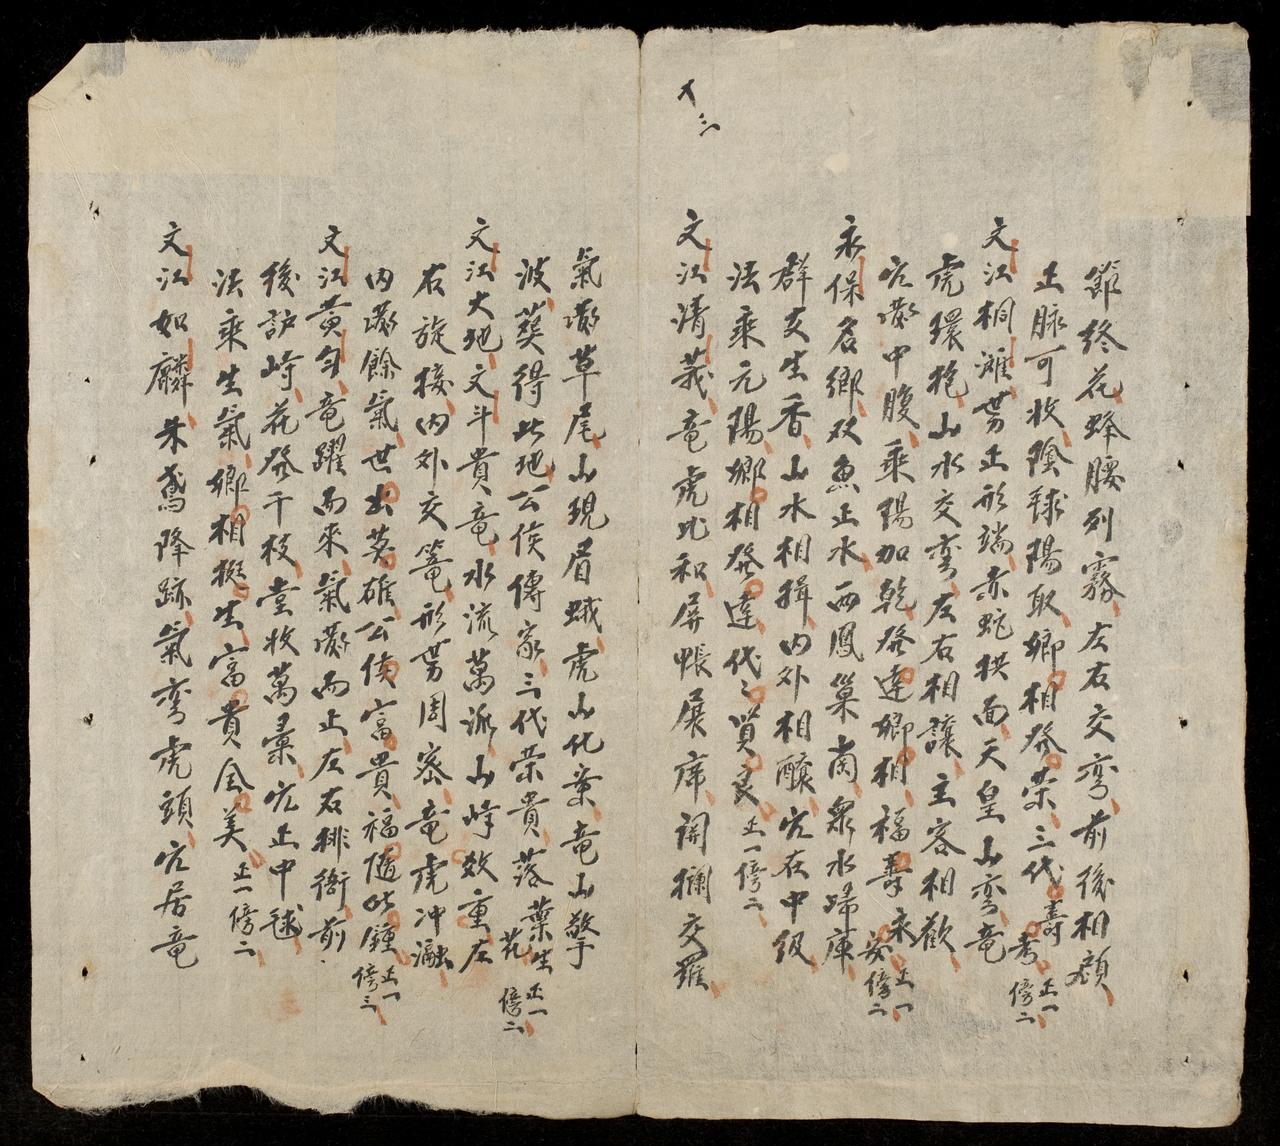 十三
節終花蜂腰列霧左右交弯前後相顧
止脉可收陰毬陽取卿相發荣三代寿考 正一傍二
文江桐灘势正形端赤蛇拱面天皇山弯竜
虎環抱山水交弯左右相讓主客相歡
穴藏中腹乘陽加乾發達卿相福寿永安 正一傍二
永保名鄉双魚止水两鳳巢崗衆水歸庫
群支生香山水相揖内外相釀穴在中級
法乘元陽鄉相發達代々賢良 正一傍二
文江清莪竜虎比和屏帳展席開欄交羅
氣藏草尾山現眉蛾虎山化業竜山擎
波葵得此地公侯傳家三代荣貴落葉生花 正一傍二
文江大地文斗貴竜水流萬派山峰效重左
右旋接内外交篭形势周密竜虎冲瀜
内藏餘氣世出英雄公侯富貴福隨此鍾 正一傍三
文江黄勻竜躍而來氣藏而止左右排衙前
後護峙花發千枝堂收萬彙穴正中毬
法乘生氣鄉相挺生富貴全美 正一傍二
文江如麟朱鳶降跡氣弯虎頭穴居竜